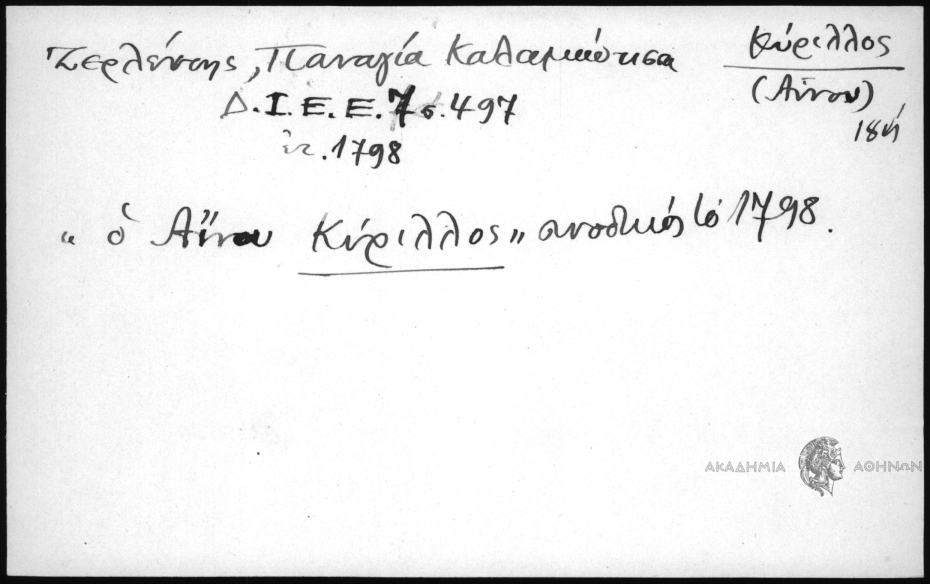 Ζερλέντης, Παναγία Καλαμιώτισσα
Δ.Ι.Ε.Ε. 7 σ. 497
ἐτ. 1798
Κύριλλος
(Αἴνου)
18ή
“ ὁ Αἴνου Κύριλλος „ συνοδικός τό 1798.
ΑΚΑΔΗΜΙΑ ΑΘΗΝΩΝ